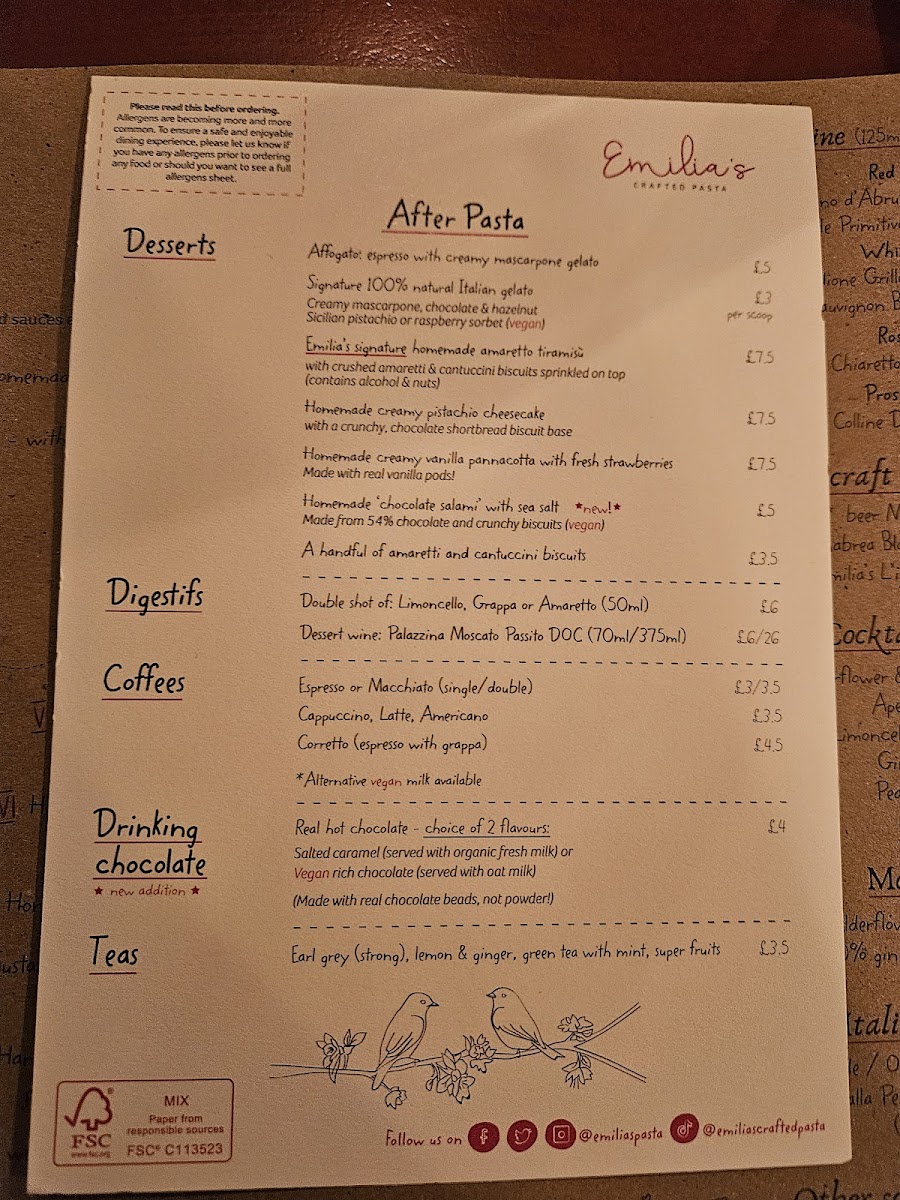 Please read this before ordering.
Allergens are becoming more and more
common. To ensure a safe and enjoyable
dining experience, please let us know if
you have any allergens prior to ordering
any food or should you want to see a full
allergens sheet.
Emilia's
CRAFTED PASTA
After Pasta
Desserts
Affogato: espresso with creamy mascarpone gelato £5
Signature 100% natural Italian gelato £3
Creamy mascarpone, chocolate & hazelnut per scoop
Sicilian pistachio or raspberry sorbet (vegan)
Emilia's signature homemade amaretto tiramisù £7.5
with crushed amaretti & cantuccini biscuits sprinkled on top
(contains alcohol & nuts)
Homemade creamy pistachio cheesecake £7.5
with a crunchy, chocolate shortbread biscuit base
Homemade creamy vanilla pannacotta with fresh strawberries £7.5
Made with real vanilla pods!
Homemade 'chocolate salami' with sea salt *new!* £5
Made from 54% chocolate and crunchy biscuits (vegan)
A handful of amaretti and cantuccini biscuits £3.5
Digestifs
Double shot of: Limoncello, Grappa or Amaretto (50ml) £6
Dessert wine: Palazzina Moscato Passito DOC (70ml/375ml) £6/26
Coffees
Espresso or Macchiato (single/double) £3/3.5
Cappuccino, Latte, Americano £3.5
Corretto (espresso with grappa) £4.5
*Alternative vegan milk available
Drinking
chocolate
★ new addition ★
Real hot chocolate - choice of 2 flavours: £4
Salted caramel (served with organic fresh milk) or
Vegan rich chocolate (served with oat milk)
(Made with real chocolate beads, not powder!)
Teas
Earl grey (strong), lemon & ginger, green tea with mint, super fruits £3.5
FSC®
www.fsc.org
MIX
Paper from
responsible sources
FSC® C113523
Follow us on @emiliaspasta @emiliascraftedpasta
(125m
Red
Chiaretto
Colline D
craft
beer